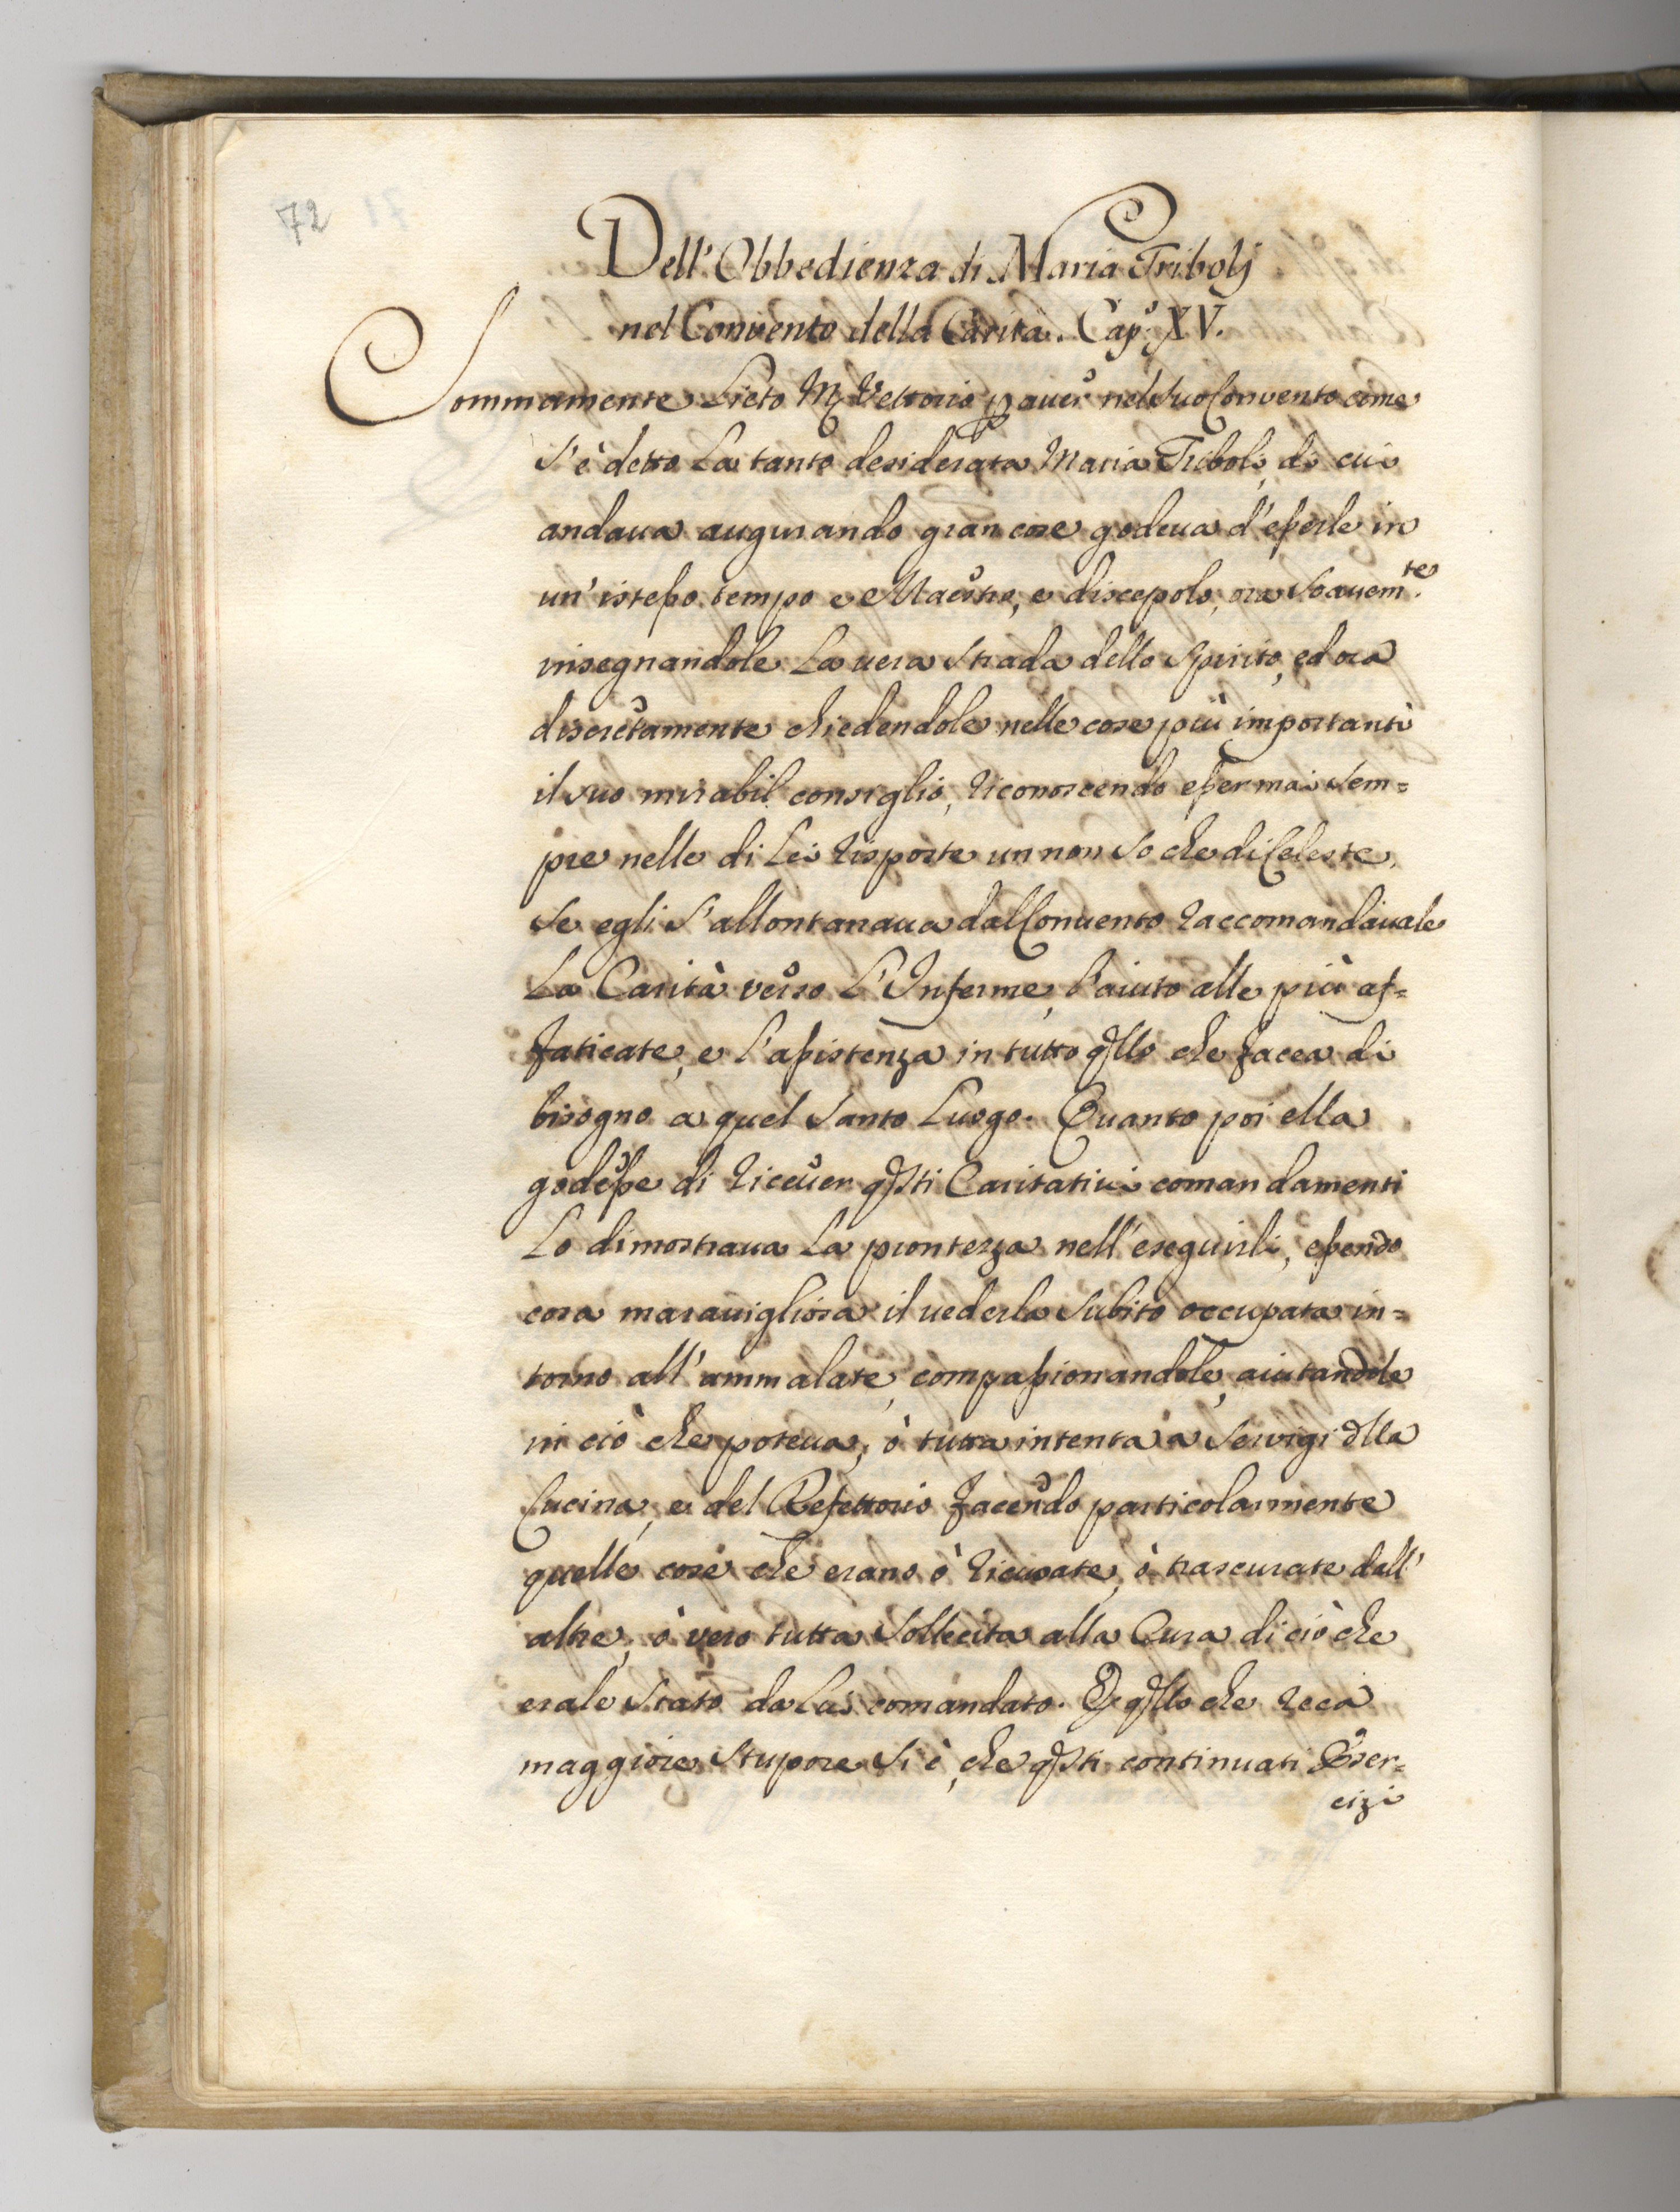 72
Dell'Obbedienza di Maria Tribolj
nel Convento della Carità. Cap.º XV.
Sommamente Lieto M. Vettorio p auer nel suo Convento come
s'è detto La tanto desiderata Maria Triboli, di cui
andaua augurando gran cose godeua d'esserle in
un'istesso tempo e Maestro, e discepolo, ora Soauem.te
insegnandole La uera Strada dello Spirito, ed ora
discretamente chiedendole nelle cose più importanti
il suo mirabil consiglio, riconoscendo esser mai Sem=
pre nelle di Lei risposte un non so che di Celeste,
Se egli s'allontanaua dal Conuento raccomandauale
La Carità verso L'Inferme, l'aiuto alle più af=
faticate, e l'assistenza in tutto qllo che facea di
bisogno a quel Santo Luogo. Quanto poi ella
godesse di riceuer qsti Caritatiui comandamenti
Lo dimostraua La prontezza nell'eseguirli, essendo
cosa marauigliosa il uederla Subito occupata in=
torno all'ammalate, compassionandole, aiutandole
in ciò che poteua, ò tutta intenta a Servigi dlla
Cucina, e del Refettorio facendo particolarmente
quelle cose che erano ò ricusate, ò trascurate dall'
altre, ò vero tutta Sollecita alla Cura di ciò che
erale Stato da Lui comandato. E qllo che reca
maggiore Stupore Si è, che qsti continuati Eser=
cizi